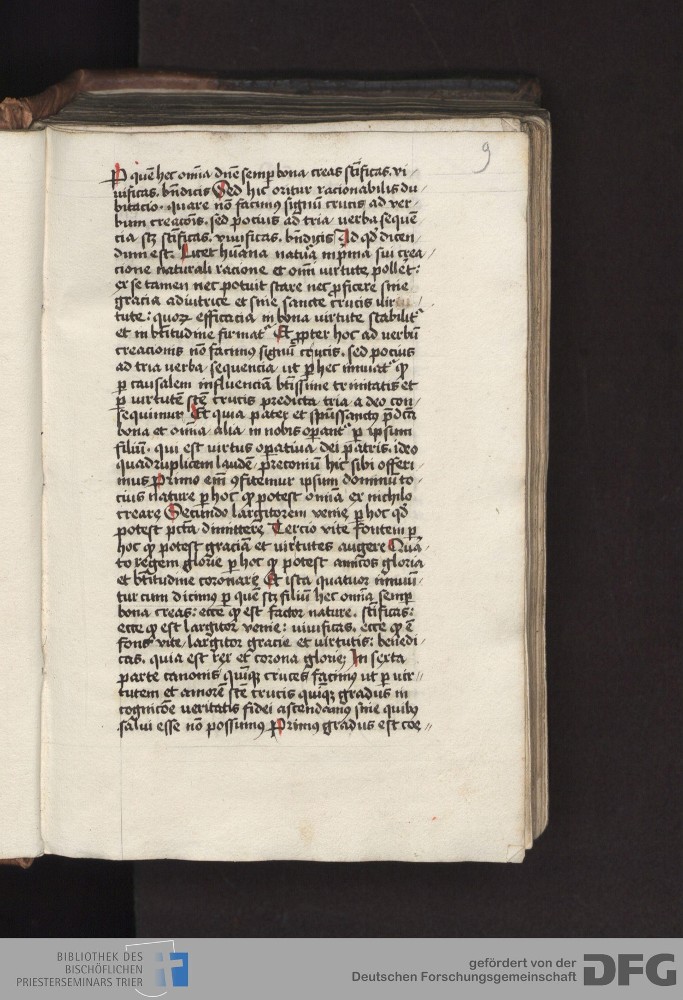 9
P quē hec om̄ia dn̄e semp bona creas stīficas. vi
uificas. bn̄dicis Sed hic oritur racionabilis du
bitacio. quare nō facimus signū crucis ad ver
bum creacōis. sed pocius ad tria verba sequē
cia stz stīficas. vivificas. bn̄dicis Ad qd dicen
dum est. Licet huāna natura in pma sui crea
cione naturali racione et omī virtute pollēt:
ex se tamen nec potuit stare nec pficere sine
gracia adiutrice et sine sancte crucis uir
tute: quoꝝ efficacia in bona virtute stabilit᷑
et in btītudine firmat᷑ Et ꝓpter hoc ad verbū
creacionis nō facimus signū crucis. sed pocius
ad tria verba sequencia ut ꝑ hec innuat᷑ ꝙ
ꝑ causalem influenciā btīssime trinitatis et
ꝑ virtutē stē crucis predicta tria a deo con
sequimur Et quia pater et spūssanctus pdcā
bona et om̄ia alia in nobis opant᷑ ꝑ ipsum
filiū. qui est virtus opatiua dei patris. ideo
quadruplicem laudē preconiū hic sibi offeri
mus Primo em̄ ꝯfitemur ipsum dominū to
cius nature ꝑ hoc ꝙ potest om̄ia ex nichilo
creare Secundo largitorem venie ꝑ hoc qd
potest pctā dimittere Tercio vite fontem ꝑ
hoc ꝙ potest graciā et virtutes augere Quar
to regem glorie ꝑ hoc ꝙ potest amicos gloria
et btītudine coronare Et ista quatuor innuū
tur cum dicimus ꝑ quē stz filiū hec om̄ia semꝑ
bona creas: ecce ꝙ est factor nature. stīficas:
ecce ꝙ est largitor venie: vivificas. ecce ꝙ ē
fons vite largitor gracie et virtutis: benedi
cas. quia est rex et corona glorie; In sexta
parte canonis quīqꝫ cruces facimus ut ꝑ vir
tutem et amorē stē crucis quīqꝫ gradus in
cognicōe veritatis fidei ascendamus sine quibus
salui esse nō possumus Primus gradus est cog
BIBLIOTHEK DES
BISCHÖFLICHEN
PRIESTERSEMINARS TRIER
gefördert von der
Deutschen Forschungsgemeinschaft
DFG